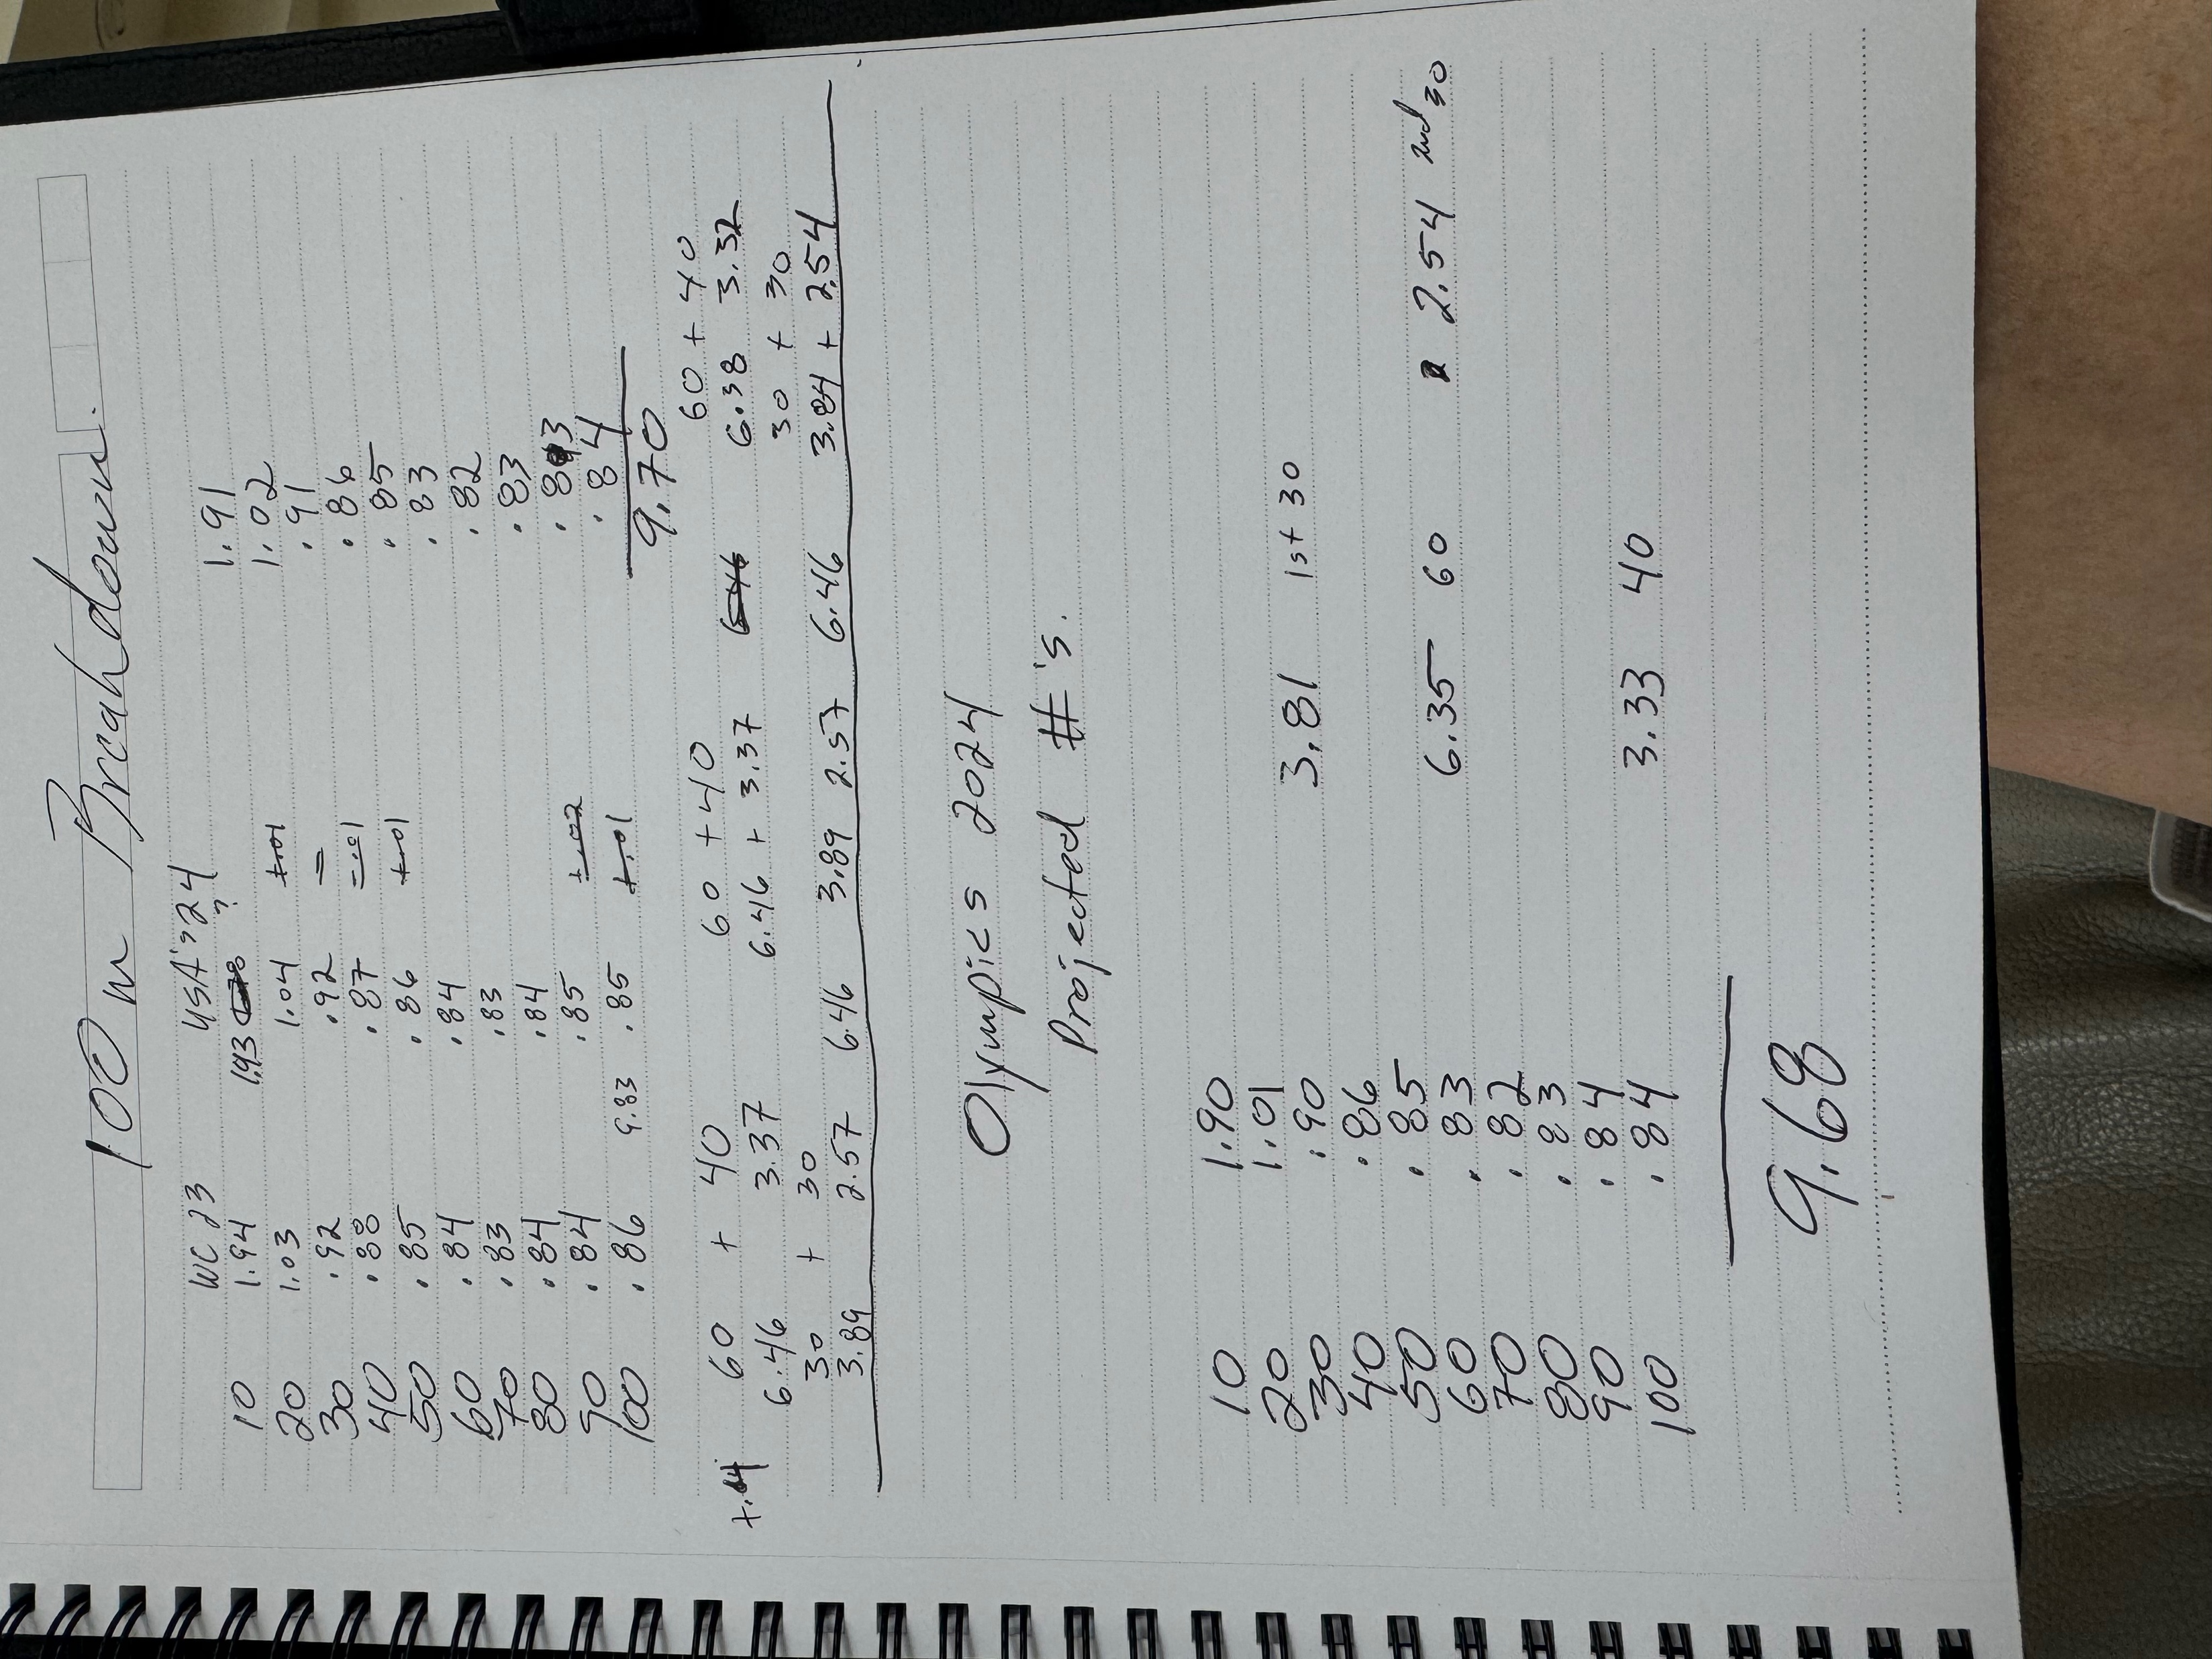 100 m Breakdown.
WC 23 USA's 24
10 1.94 1.93 ? 1.91
20 1.03 1.04 +.01 1.02
30 .92 .92 = .91
40 .88 .87 -.01 .86
50 .85 .86 +.01 .85
60 .84 .84 .83
70 .83 .83 .82
80 .84 .84 .83
90 .84 .85 +.02 .83
100 .86 9.83 .85 +.01 .84
9.70
60 + 40 60 + 40 60 + 40
6.46 3.37 6.46 + 3.37 6.46 6.38 3.32
30 + 30 30 + 30
3.89 2.57 6.46 3.89 2.57 6.46 3.84 + 2.54
Olympics 2024
Projected #'s.
10 1.90
20 1.01
30 .90 3.81 1st 30
40 .86
50 .85
60 .83 6.35 60 2.54 2nd 30
70 .82
80 .83
90 .84
100 .84 3.33 40
9.68